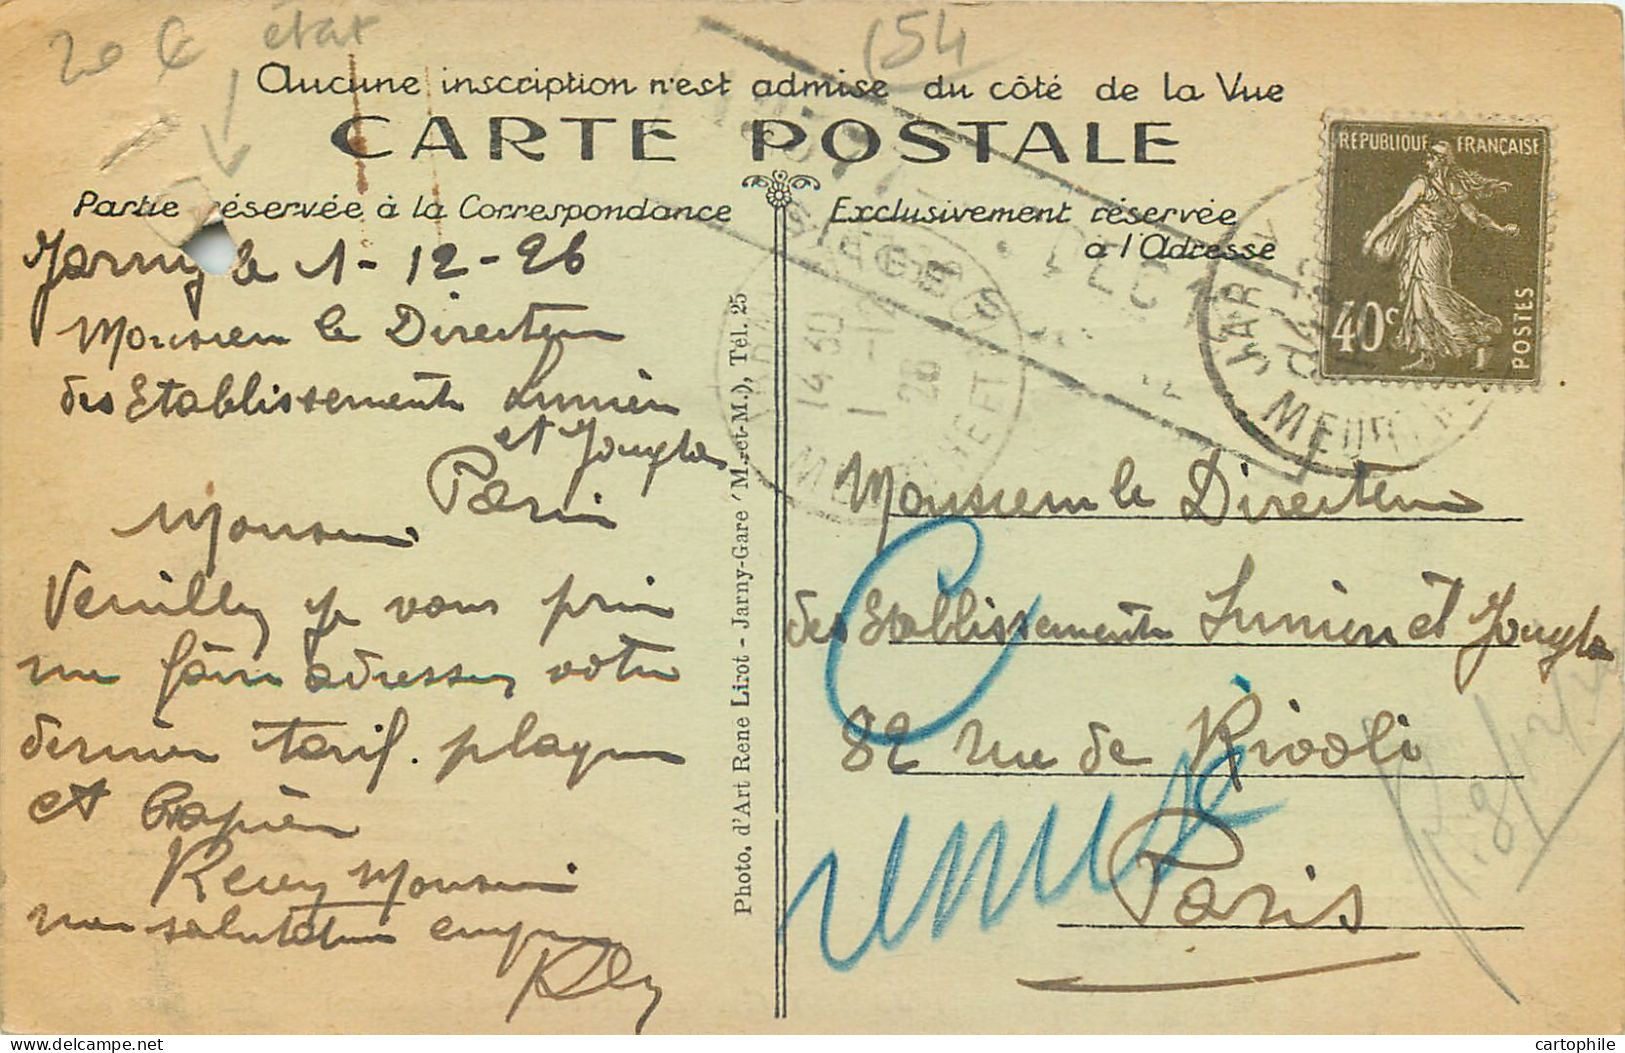 20 € état
(54
Aucune inscription n'est admise du côté de la Vue
CARTE POSTALE
Partie réservée à la Correspondance
Exclusivement réservée
à l'Adresse
REPUBLIQUE FRANÇAISE
40c
POSTES
JARNY
MEURTHE
14 30
1 - 12
26
Jarny le 1-12-26
Monsieur le Directeur
des Etablissements Lumière
et Jougla
Paris
Monsieur
Veuillez je vous prie
me faire adresser votre
dernier tarif. plaques
et Papiers
Recevez Monsieur
mes salutations
Photo. d'Art Rene Lirot - Jarny-Gare (M.-et-M.), Tél. 25
Monsieur le Directeur
des Etablissements Lumière et Jougla
82 rue de Rivoli
Paris
delcampe.net
cartophile